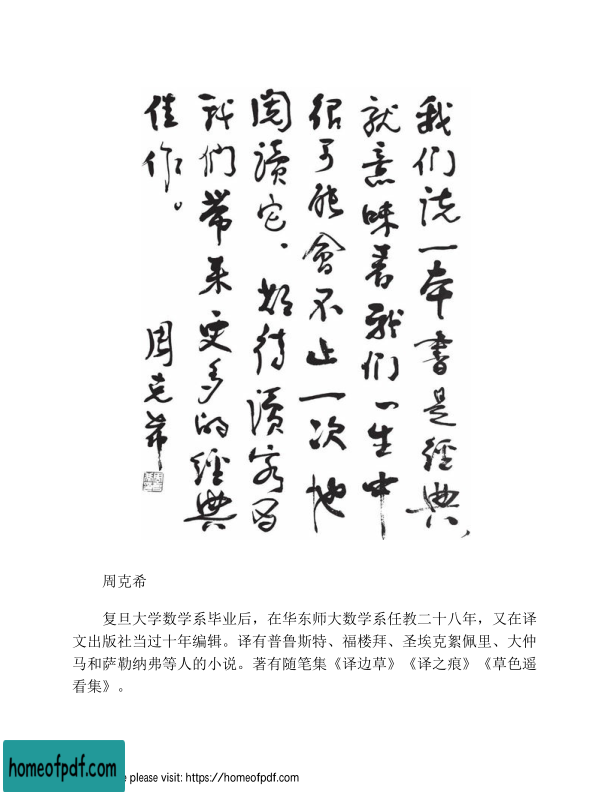 我们说一本書是經典，
就意味着我们一生中
很可能會不止一次地
閲讀它。期待讀客为
我们带来更多的經典
佳作。
周克希
周克希
复旦大学数学系毕业后，在华东师大数学系任教二十八年，又在译
文出版社当过十年编辑。译有普鲁斯特、福楼拜、圣埃克絮佩里、大仲
马和萨勒纳弗等人的小说。著有随笔集《译边草》《译之痕》《草色遥
看集》。
homeofpdf.com
please visit: https://homeofpdf.com